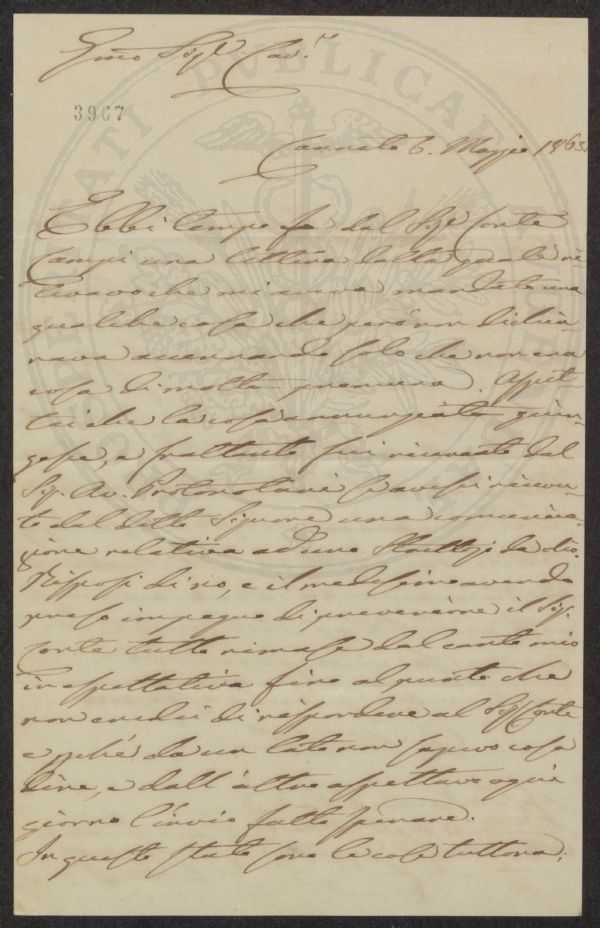 Gmo Sigr Cavr
3967
Canneto 6. Maggio 1863.
Ebbi tempo fa dal Sigr Conte
Campi una lettera dalla quale ri-
levavo che mi aveva mandato una
qualche cosa che però non dichia-
rava accennando solo che non era
cosa di molta premura. Aspet-
tai che la cosa annunziata giun-
gesse, e frattanto fui ricercato dal
Sig. Av. Protonotari se avessi ricevu-
to dal detto Signore una comunica-
zione relativa ad uno Strettojo da olio.
Risposi di no, e il medesimo avendo
preso impegno di prevenirne il Sig.
Conte tutto rimase dal canto mio
in aspettativa fino al punto che
non credei di rispondere al Sigr Conte
e perché da un lato non sapevo cosa
dire, e dall'altro aspettavo ogni
giorno l'invio fatto sperare.
In questo stato sono le cose tuttora,